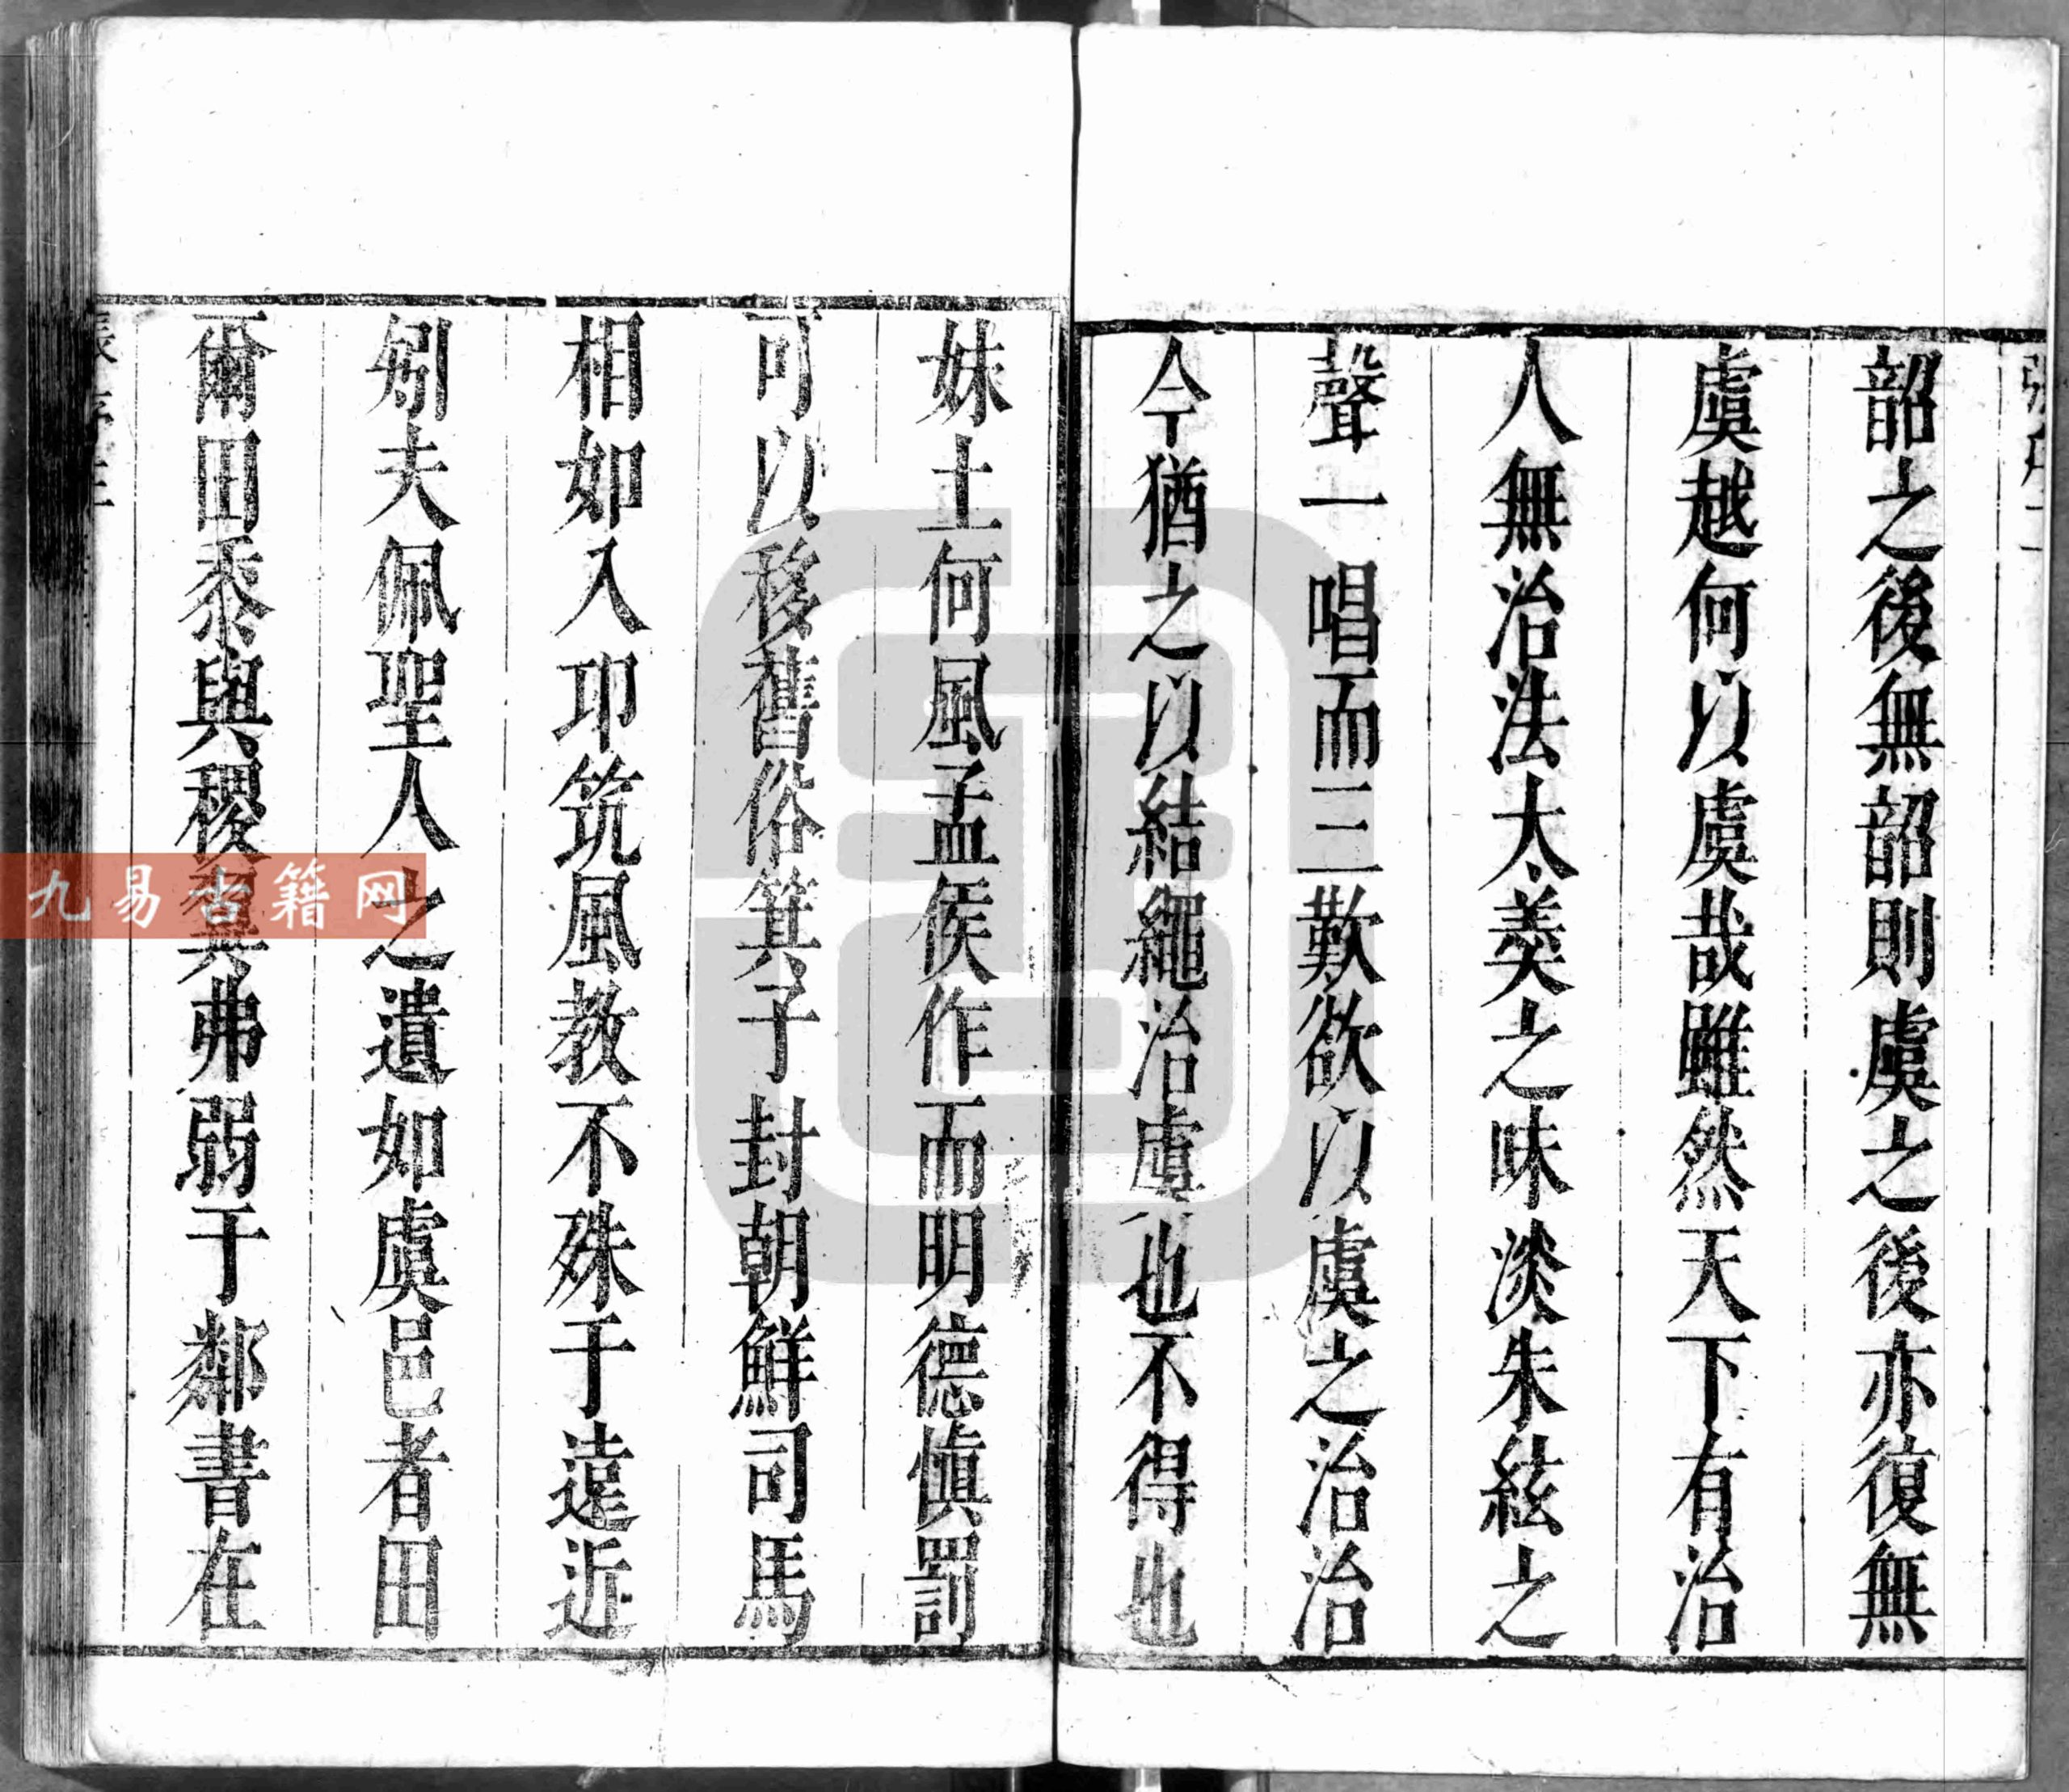 韶之後無韶則虞之後亦復無
虞越何以虞哉雖然天下有治
人無治法太羹之味淡朱絃之
聲一唱而三歎欲以虞之治治
今猶之以結繩治虞也不得也
妹土何風孟侯作而明德慎罰
可以移舊俗箕子封朝鮮司馬
相如入卭筑風教不殊于遠近
矧夫佩聖人之遺如虞邑者田
爾田黍與稷翼弗弱于鄰書在
九易古籍网